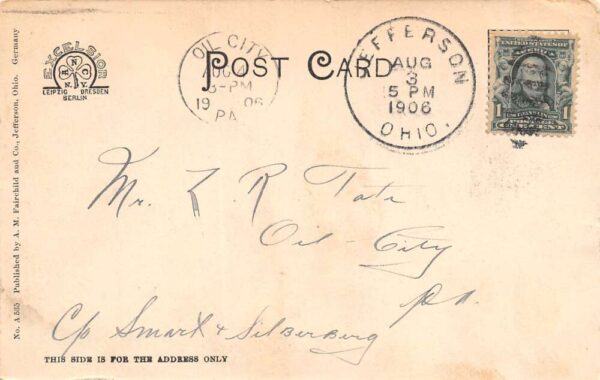 EXCELSIOR
LEIPZIG DRESDEN
BERLIN
OIL CITY
AUG
3-PM
19 06
PA
POST CARD
JEFFERSON
AUG
3
5 PM
1906
OHIO.
UNITED STATES OF
AMERICA
1 1
FRANKLIN
ONE CENT
Mr. L R Tate
Oil-City
Pa.
C/o Smart & Silberberg
THIS SIDE IS FOR THE ADDRESS ONLY
No. A 535 Published by A. M. Fairchild and Co., Jefferson, Ohio. Germany